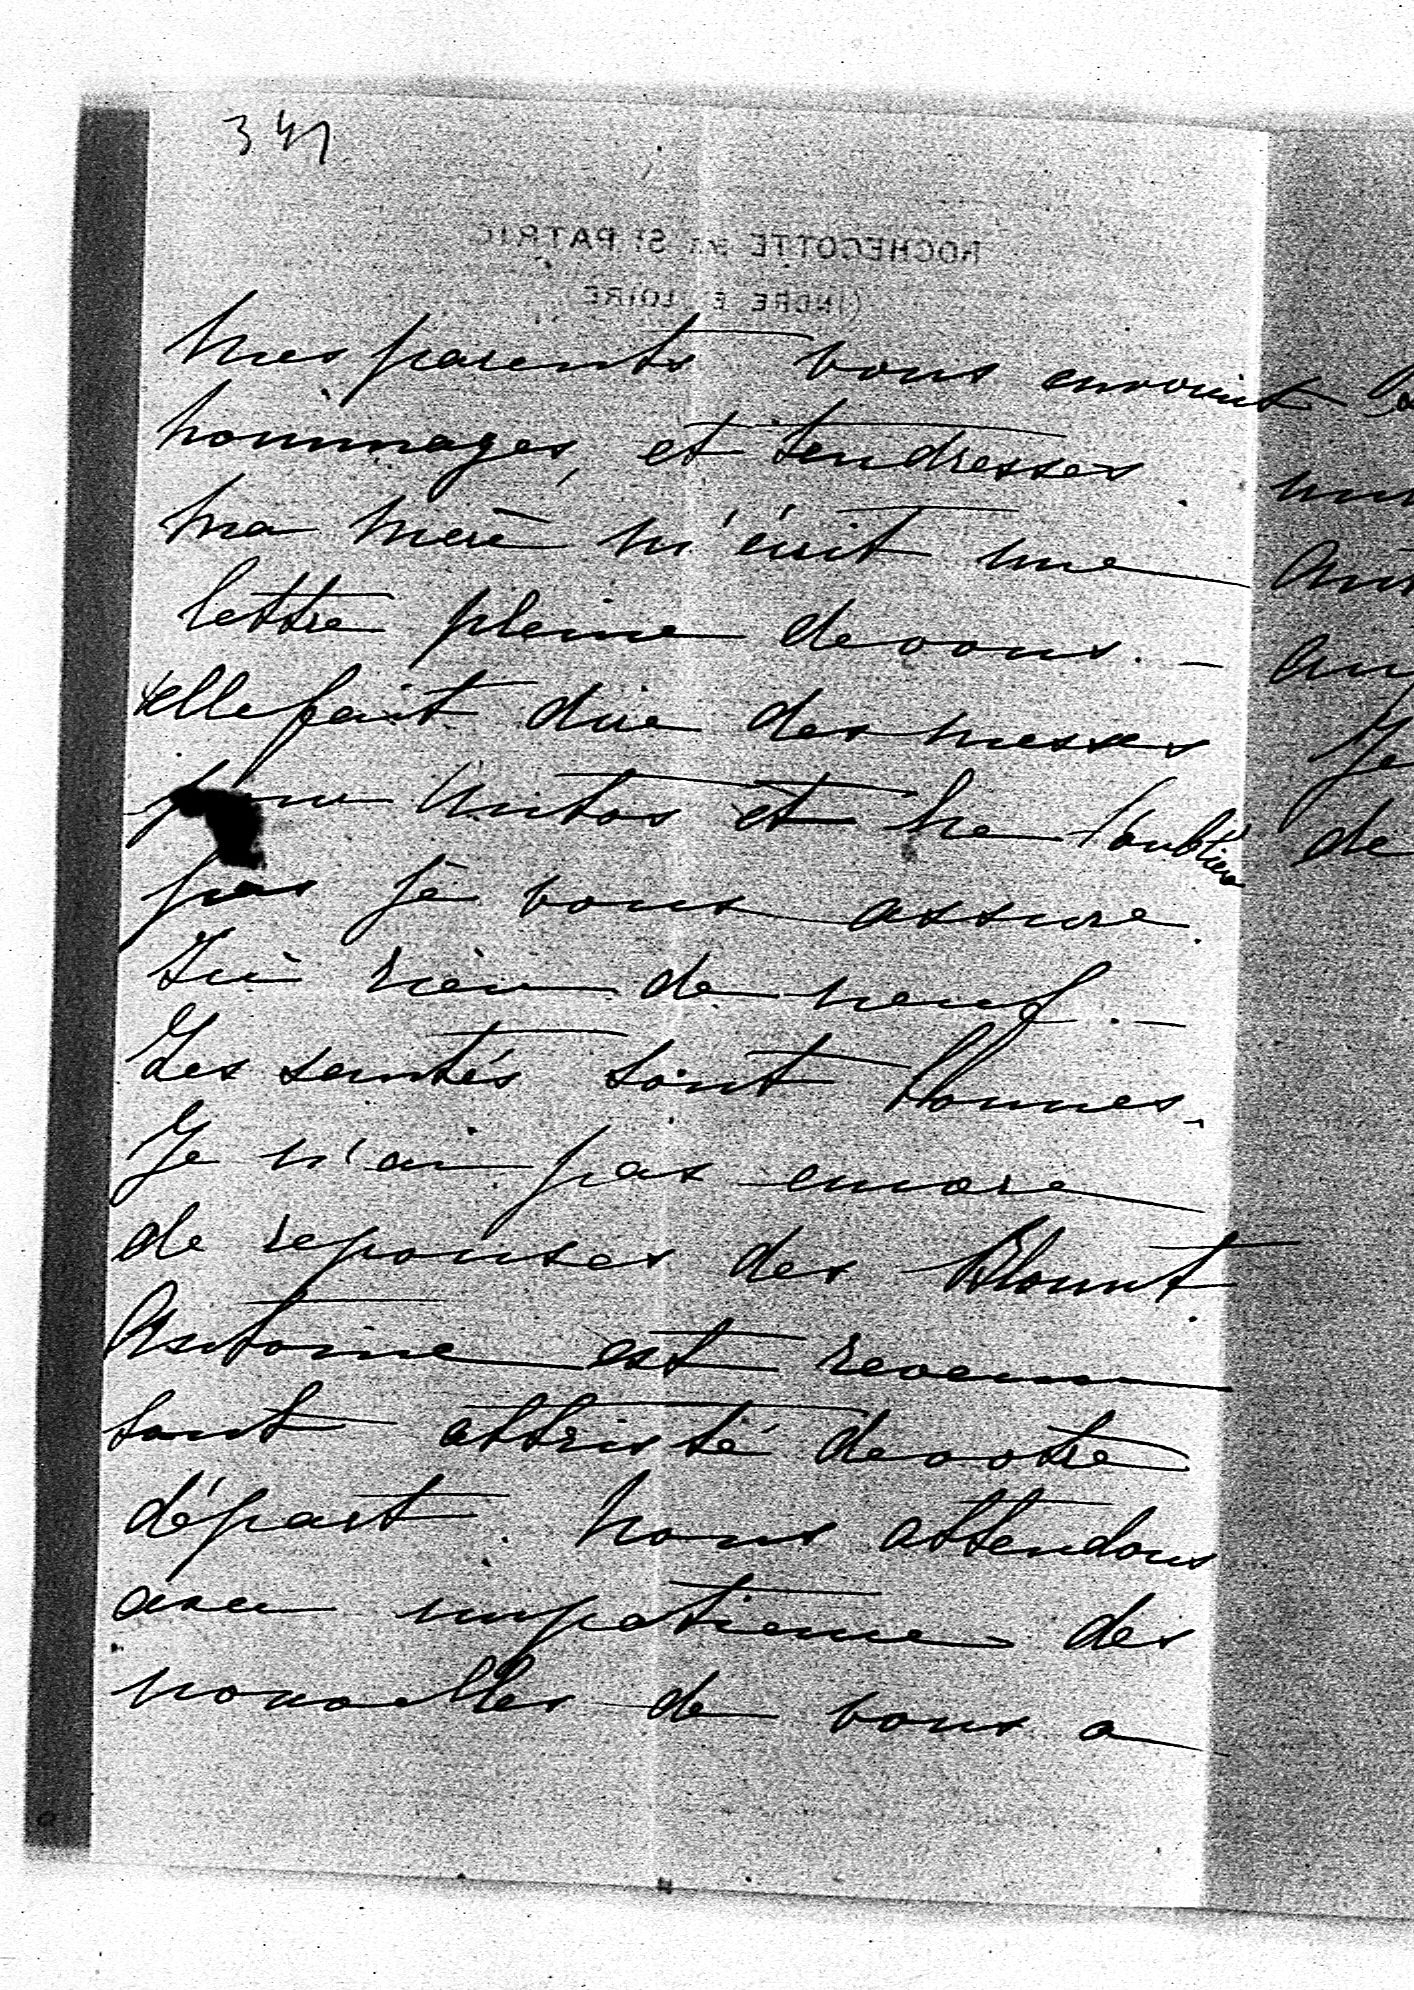 341
ROCHECOTTE PAR St PATRICE
(INDRE ET LOIRE)
Mes parents vous envoient
hommages, et tendresses.
Ma mère m'écrit une
lettre pleine de vous. -
Elle fait dire des messes
pour et ne l'oubliera
pas je vous assure.
Ici rien de neuf. -
Les santés sont bonnes.
Je n'ai pas encore
de reponses des Blount.
Antoine est revenu
tout attristé de votre
départ. Nous attendons
avec impatience des
nouvelles de vous a
Je
de